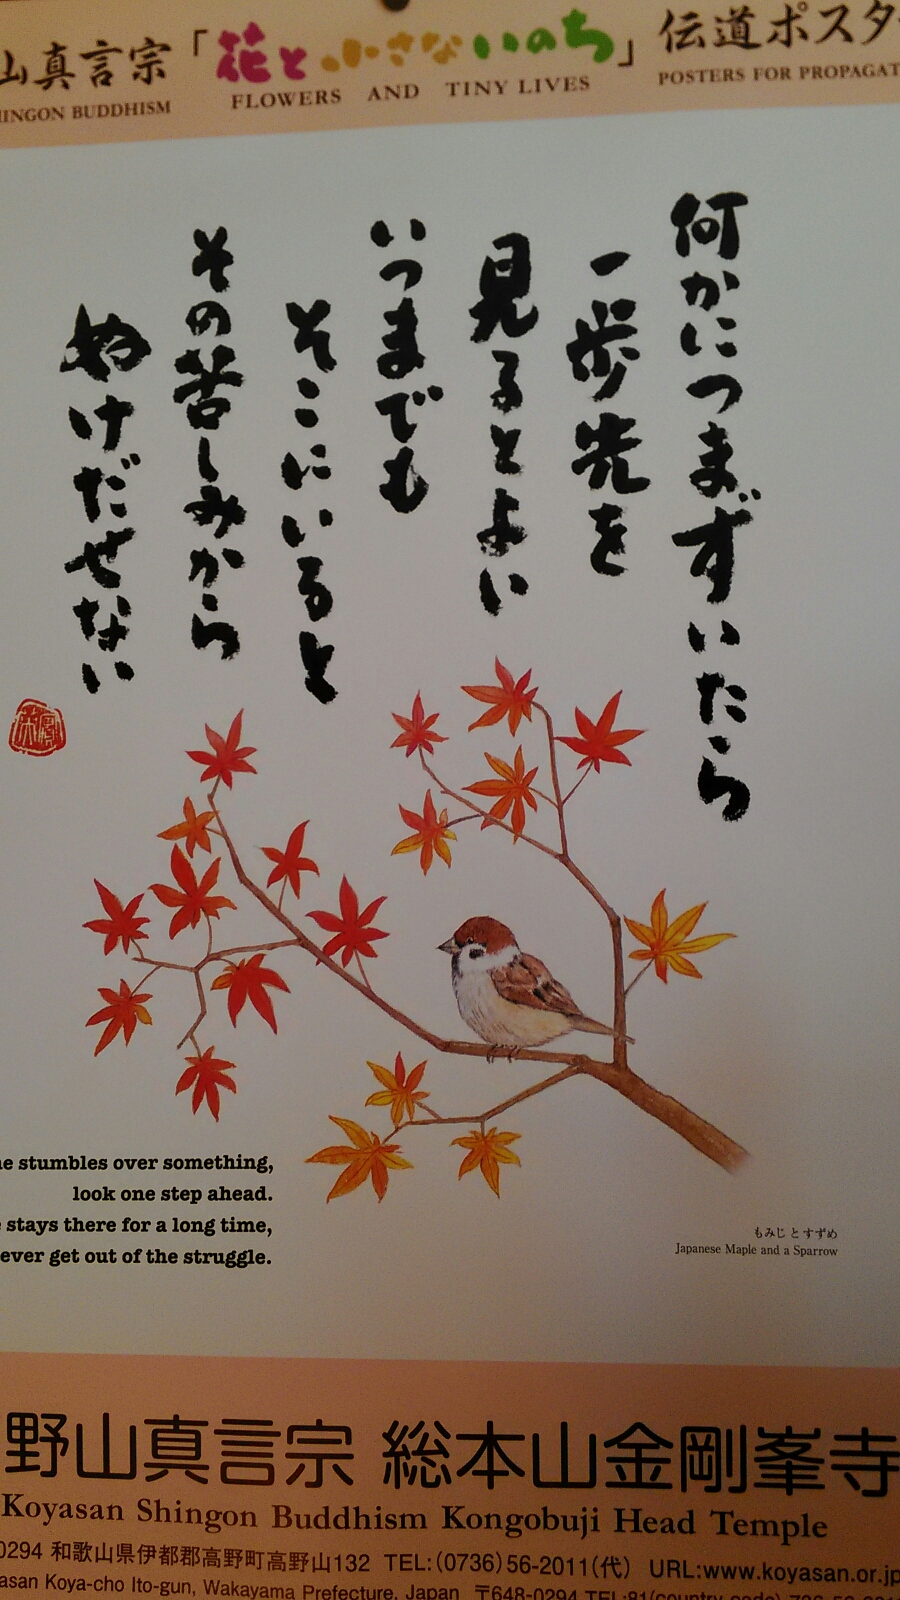 山真言宗「花と小さないのち」伝道ポスタ
INGON BUDDHISM FLOWERS AND TINY LIVES POSTERS FOR PROPAGAT
何かにつまずいたら
一歩先を
見るとよい
いつまでも
そこにいると
その苦しみから
ぬけだせない
e stumbles over something,
look one step ahead.
stays there for a long time,
ever get out of the struggle.
もみじとすずめ
Japanese Maple and a Sparrow
野山真言宗 総本山金剛峯寺
Koyasan Shingon Buddhism Kongobuji Head Temple
0294 和歌山県伊都郡高野町高野山132 TEL:(0736)56-2011(代) URL:www.koyasan.or.jp
asan Koya-cho Ito-gun, Wakayama Prefecture, Japan 〒648-0294 TEL:81(country code)